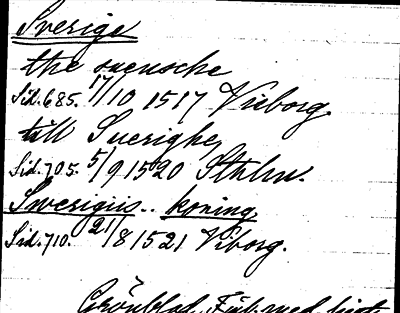 Sverige
the suensche
Sid. 685. 17/10 1517 Viborg.
till Suerighe,
Sid. 705. 5/9 1520 Sthlm.
Swerigiis.. koning,
Sid. 710. 21/8 1521 Viborg.
Grönblad,